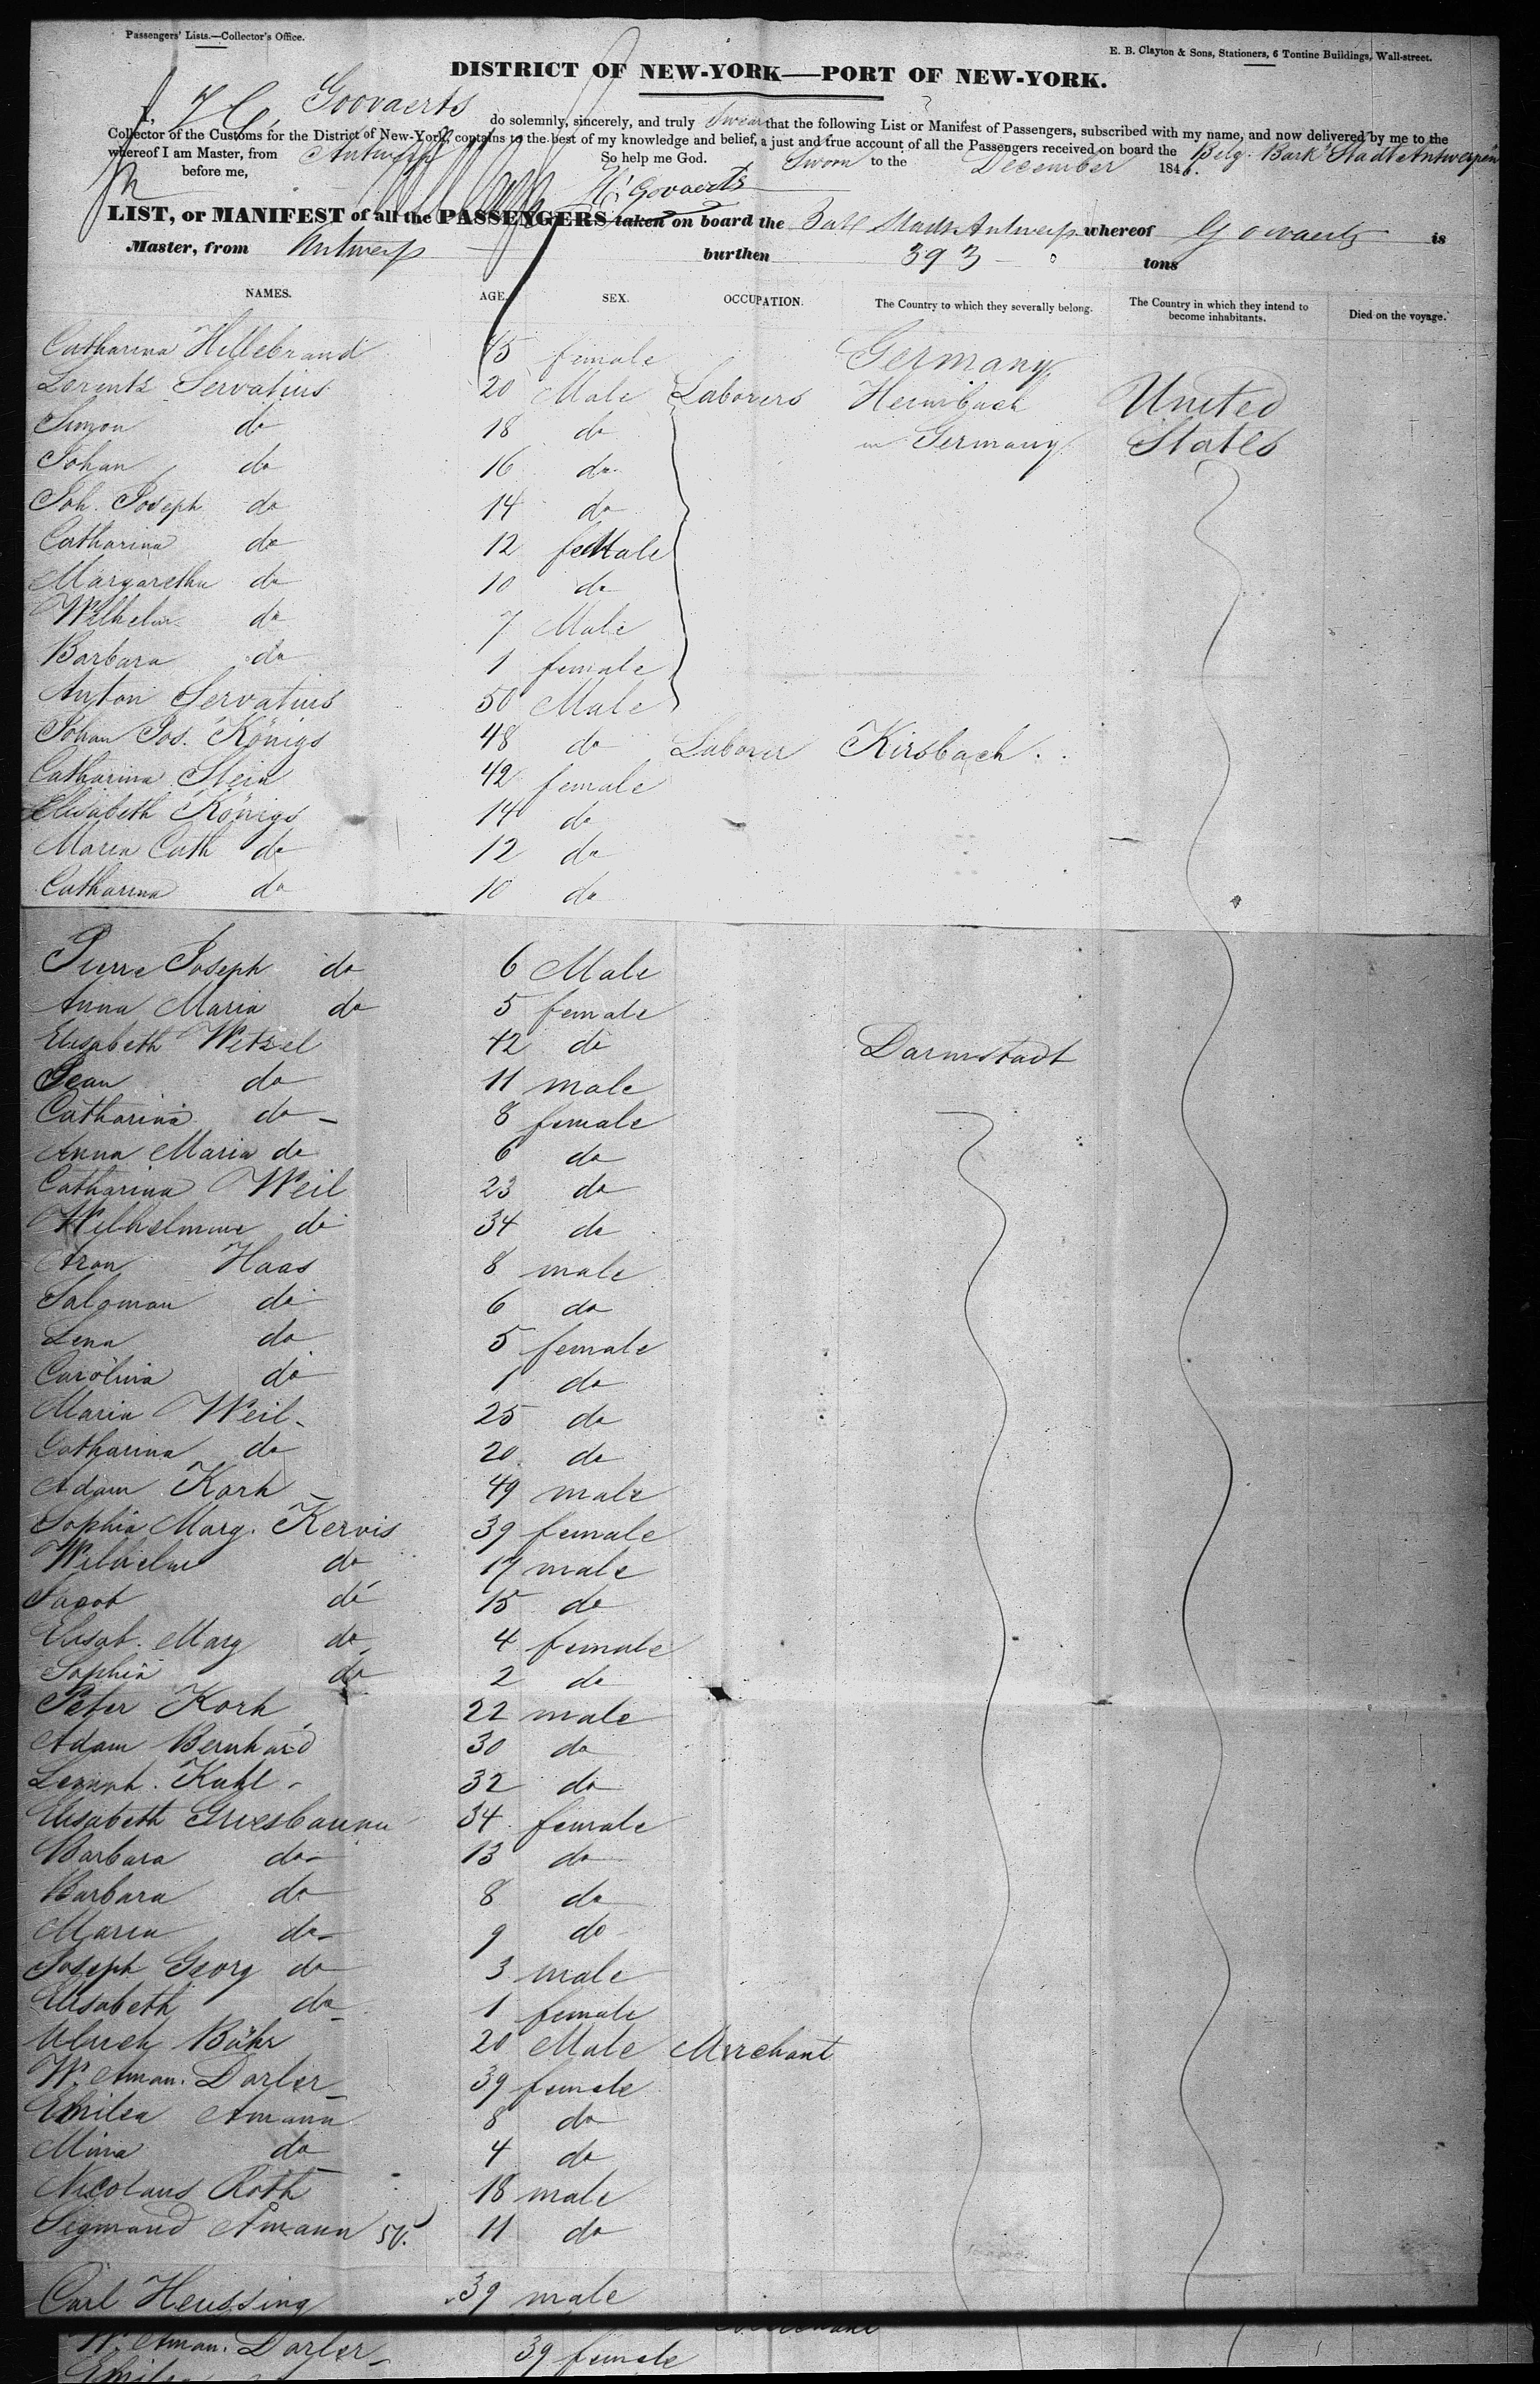 Passengers' Lists.—Collector's Office.
E. B. Clayton & Sons, Stationers, 6 Tontine Buildings, Wall-street.
DISTRICT OF NEW-YORK—PORT OF NEW-YORK.
I, Goovaerts do solemnly, sincerely, and truly Swear that the following List or Manifest of Passengers, subscribed with my name, and now delivered by me to the
Collector of the Customs for the District of New-York, contains to the best of my knowledge and belief, a just and true account of all the Passengers received on board the Belg. Bark Stadt Antwerpen
whereof I am Master, from Antwerp So help me God. Sworn to the December 1846.
before me, Govaerts
LIST, or MANIFEST of all the PASSENGERS taken on board the Bark Stadt Antwerp whereof Govaerts is
Master, from Antwerp burthen 393 tons
NAMES. AGE. SEX. OCCUPATION. The Country to which they severally belong. The Country in which they intend to become inhabitants. Died on the voyage.
Catharina Hillebrand 45 female Germany
Lorentz Servatius 20 Male Laborers Heimbach United
Simon do 18 do in Germany States
Johan do 16 do
Joh. Joseph do 14 do
Catharina do 12 female
Margaretha do 10 do
Wilhelm do 7 Male
Barbara do 1 female
Anton Servatius 50 Male
Johan Jos. Königs 48 do Laborer Kirsbach
Catharina Stein 42 female
Elisabeth Königs 14 do
Maria Cath do 12 do
Catharina do 10 do
Pierre Joseph do 6 Male
Anna Maria do 5 female
Elisabeth Wetzel 42 do Darmstadt
Jean do 11 male
Catharina do 8 female
Anna Maria do 6 do
Catharina Weil 23 do
Wilhelmine do 34 do
Aron Haas 8 male
Saloman do 6 do
Lena do 5 female
Carolina do 1 do
Maria Weil 25 do
Catharina do 20 do
Adam Korh 49 male
Sophia Marg. Kervis 39 female
Wilhelm do 17 male
Jacob do 15 do
Elisab. Marg do 4 female
Sophia do 2 do
Peter Korh 22 male
Adam Bernhard 30 do
Kuhl 32 do
Elisabeth Griesbaum 34 female
Barbara do 13 do
Barbara do 8 do
Maria do 9 do
Joseph Georg do 3 male
Elisabeth do 1 female
Ulrich Bühr 20 Male Merchant
W. Aman. Dorler 39 female
Emilea Amann 8 do
Mina do 4 do
Nicolaus Roth 18 male
Sigmund Amann 50. 11 do
Carl Heussing 39 male
W. Aman. Dorler 39 female